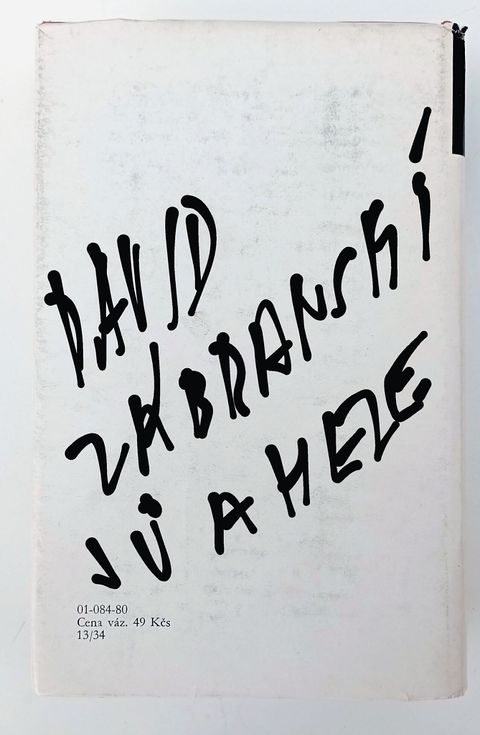 DAVID
ZÁBRANSKÝ
JŮ A HELE
01-084-80
Cena váz. 49 Kčs
13/34